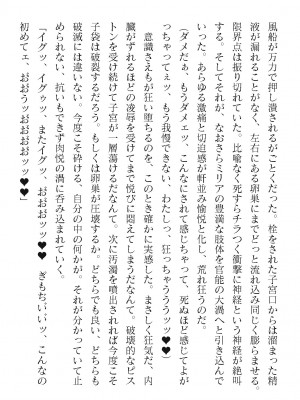 風船が万力で押し潰されるがごとくだった。栓をされた子宮口からは溜まった精
液が漏れることがなく、左右にある卵巣にまでどっと流れ込み同じく膨らませる。
限界点は振り切れていた。比喩なく死すらチラつく衝撃に神経という神経が絶叫
する。そしてそれが、なおさらミリアの豊満な肢体を官能の大渦へと引き込んで
いった。あらゆる激痛と切迫感が軒並み愉悦と化し、荒れ狂うのだ。
「ダメだぁ、もうダメェッ、こんなにされて感じちゃって、死ぬほど感じてよが
っちゃってぇッ、もう我慢できない、わたしっ、狂っちゃううぅッッ♥♥」
意識さえもが狂い堕ちるのを、このとき確かに実感した。まさしく狂気だ、内
臓がずれるほどの凌辱を受けてまで悦びに悶えてしまうだなんて。破壊的なピス
トンを受け続けて子宮が一層蕩けるだなんて。次に汚濁を噴出されれば今度こそ
子袋は破裂するだろう、もしくは卵巣が圧壊するか。どちらでも良い、どちらも
破滅には違いない。今度こそ砕ける、自分の中の何かが。それが分かっていて止
められない、抗いもできず肉悦の渦に呑み込まれていく。
「イグッ、イグゥッ、またイグッ、おおおォッッ♥♥　ぎもちいいッ、こんなの
初めてェ、おおうッおおおおォッッ♥♥」